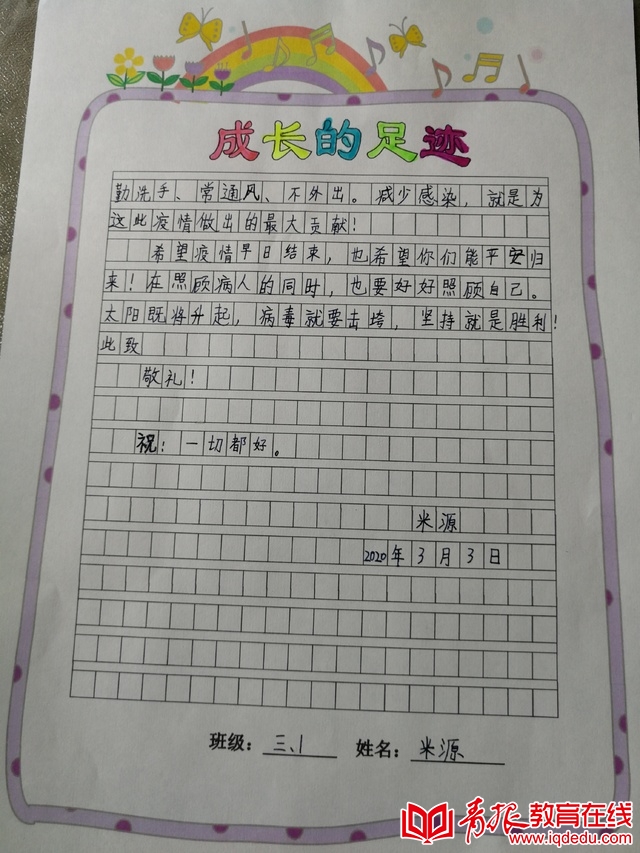 成长的足迹
勤洗手、常通风、不外出。减少感染,就是为
这此疫情做出的最大贡献!
希望疫情早日结束,也希望你们能平安归
来!在照顾病人的同时,也要好好照顾自己。
太阳既将升起,病毒就要击垮,坚持就是胜利!
此致
敬礼!
祝:一切都好。
米源
2020年3月3日
班级:三、1 姓名:米源
青报教育在线
www.iqdedu.com